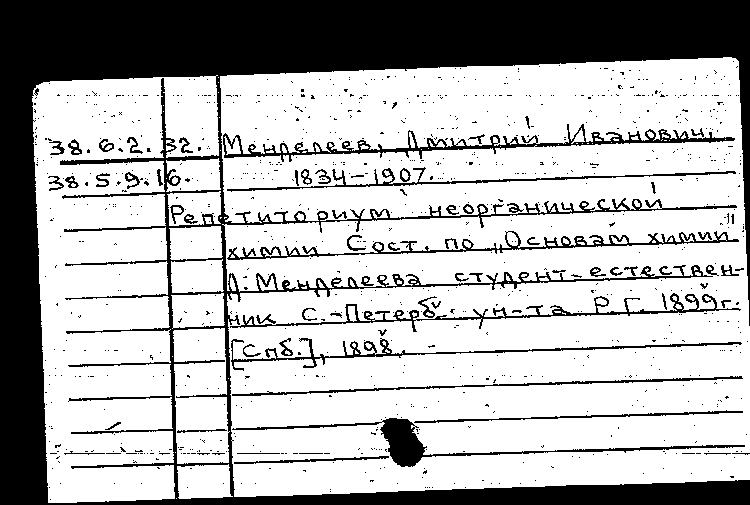 38.6.2.32. Менделеев, Дмитрий Иванович,
38.5.9.16. 1834-1907.
Репетиториум неорганической
химии Сост. по „Основам химии"
Д. Менделеева студент-естествен-
ник С.-Петерб. ун-та Р.Г. 1899г.
[Спб.], 1898.